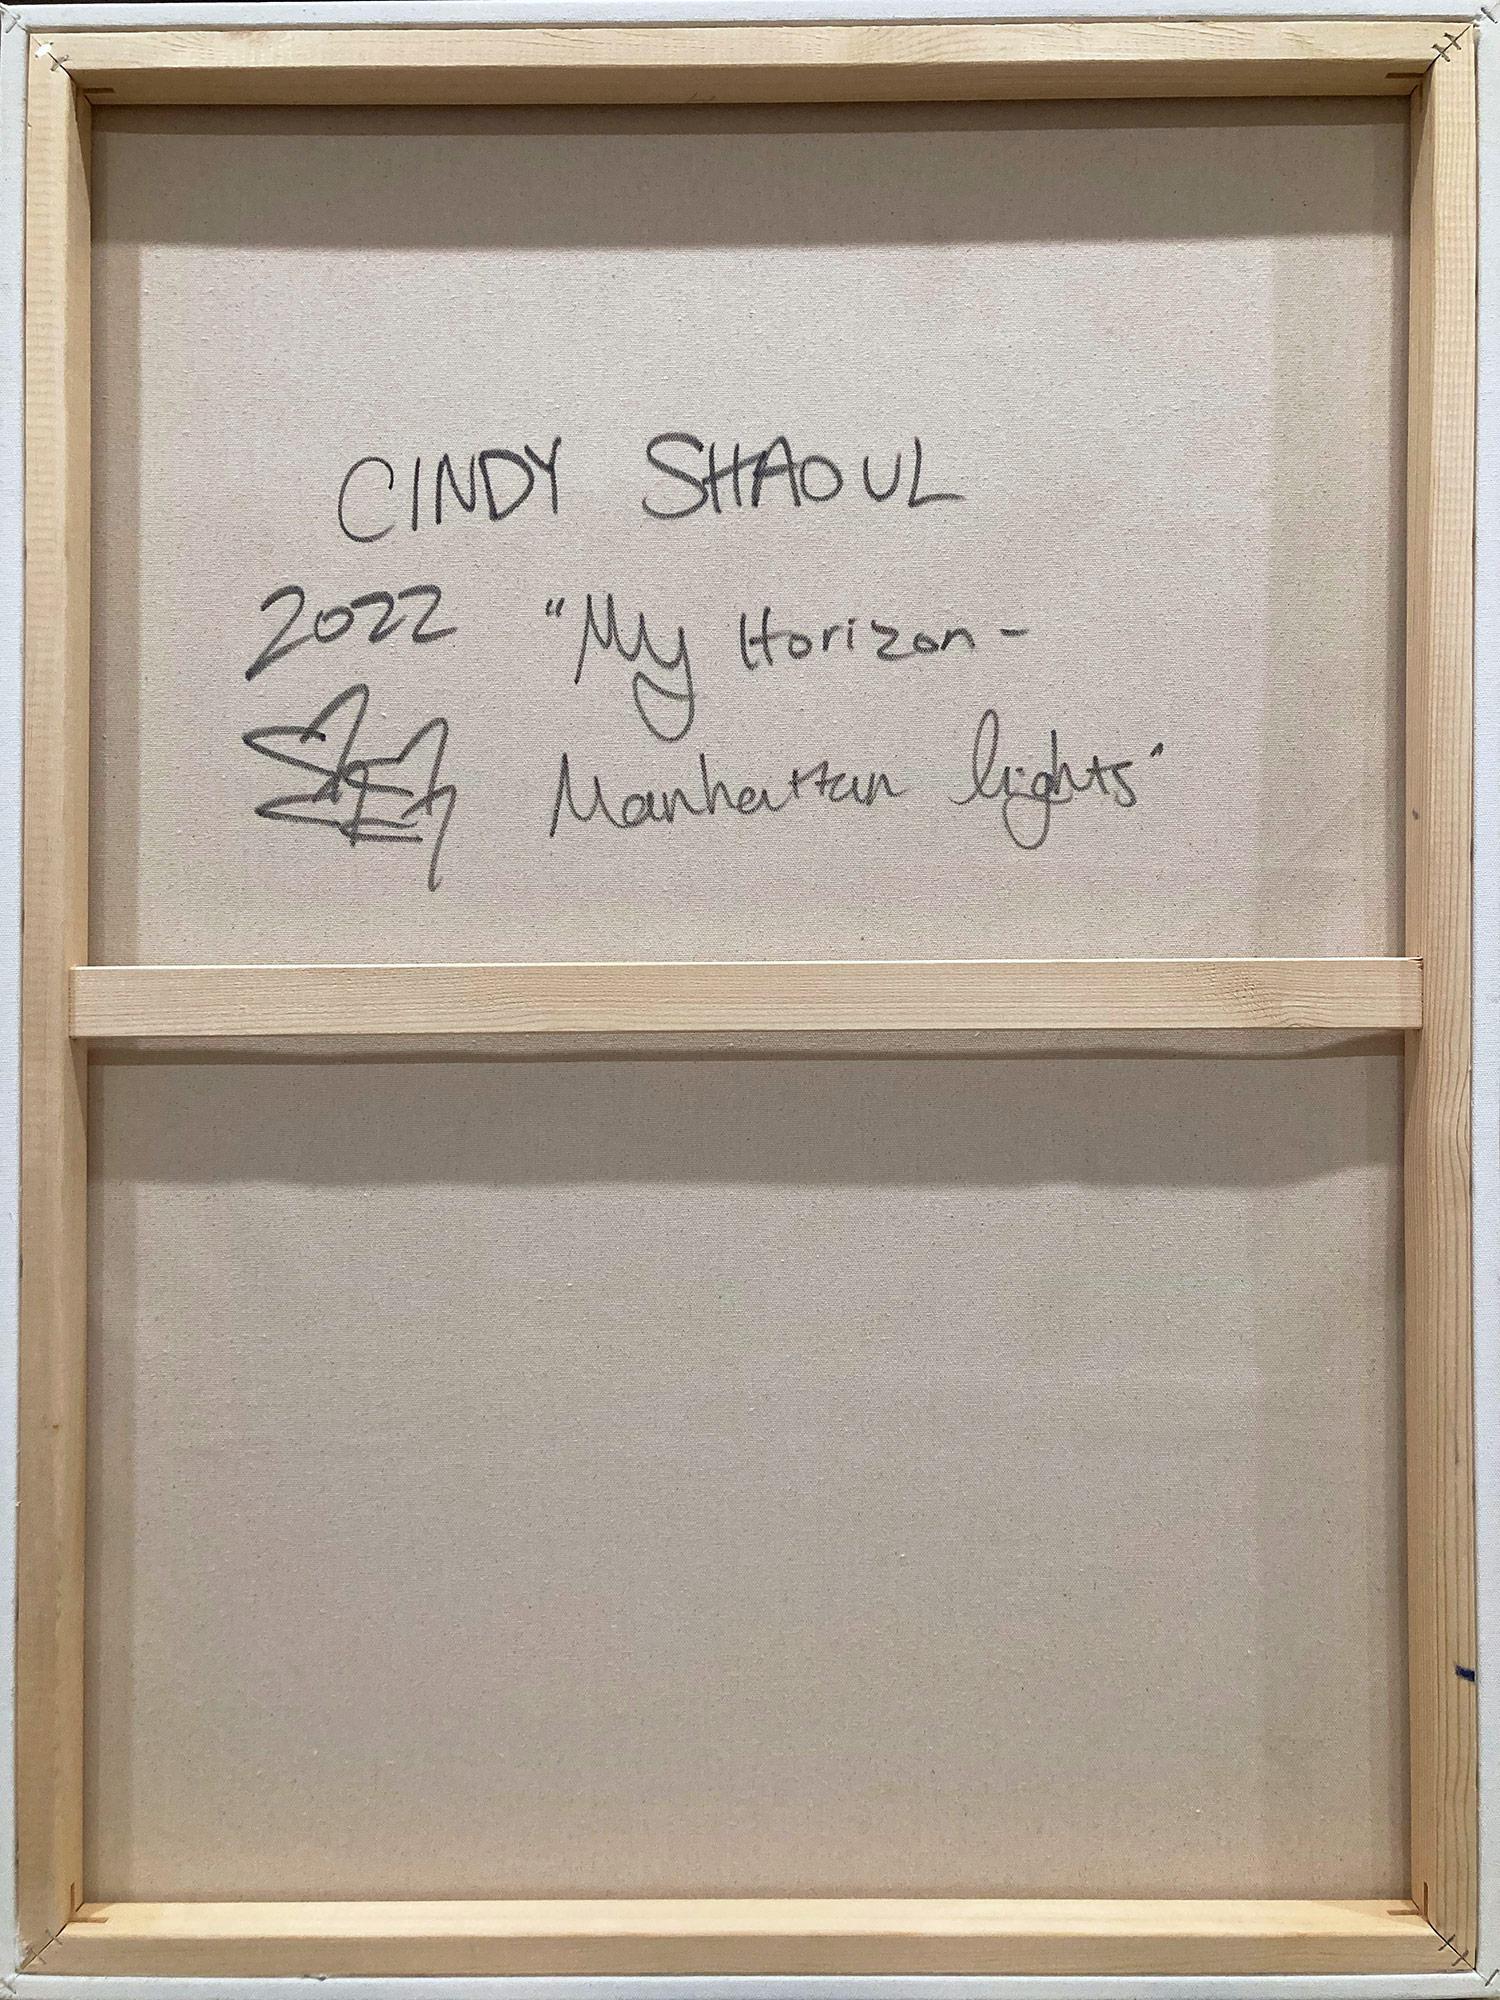 CINDY SHAOUL
2022 "My Horizon-
Manhattan lights"